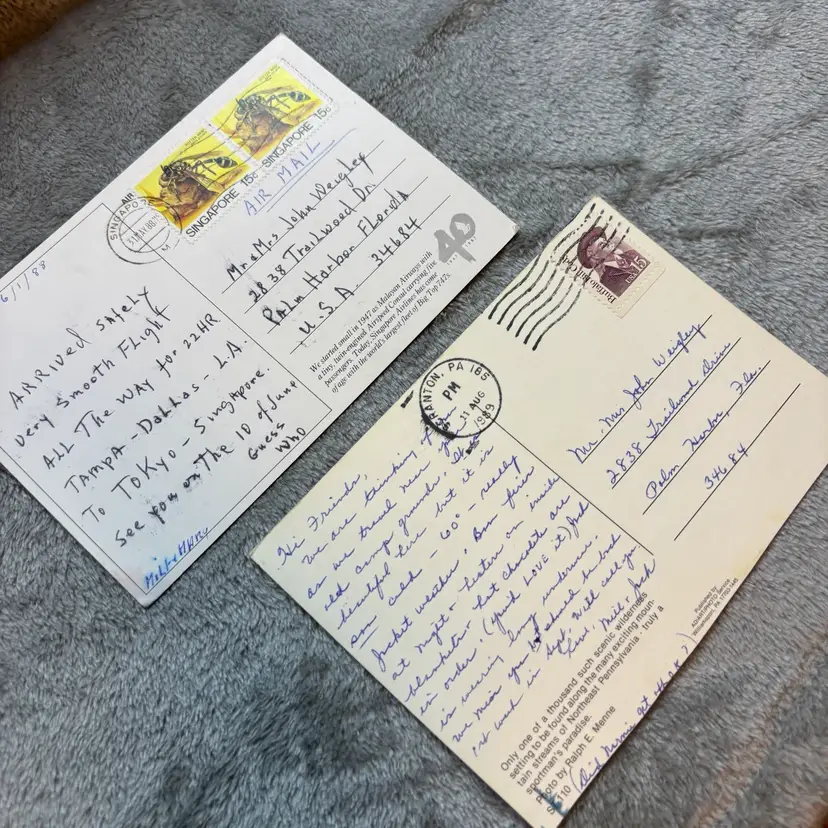 SINGAPORE 15c
SINGAPORE 15c
AIR MAIL
SINGAPO
31 MAY 88
6/1/88
ARRIVED SAFELY
Very smooth FLIGHT
ALL THE WAY for 22 HR
TAMPA - DALLAS - L.A.
TO TOKYO - Singapore.
See you on the 10 of June
Guess
Who
Mr & Mrs John Weighey
2838 Trailwood Dr.
Palm Harbor Florida
U.S.A. 34684
40
We started small in 1947 as Malayan Airways with
a tiny, twin-engined Airspeed Consul carrying five
passengers. Today, Singapore Airlines has come
of age with the world's largest fleet of Big Top 747s.
Buffalo Bill Cody
USA 15
RANTON, PA 185
PM
11 AUG
1989
Hi Friends,
We are thinking of you
as we travel near your
old camp grounds. It is
beautiful here but it is
cold - 60° - really
jacket weather. Bon fires
at night & flannel on inside
blankets & hot chocolate are
in order. (you'd LOVE it) Jack
is wearing long undies.
We miss you
week in Sept. Will call you.
Love, Mill & Jack
Mr. Mrs John Weighey
2838 Trailwood Drive
Palm Harbor, Fla.
34684
Only one of a thousand such scenic wilderness
setting to be found along the many exciting moun-
tain streams of Northeast Pennsylvania - truly a
sportman's paradise.
Photo by Ralph E. Menne
Published by
Williamsport, PA